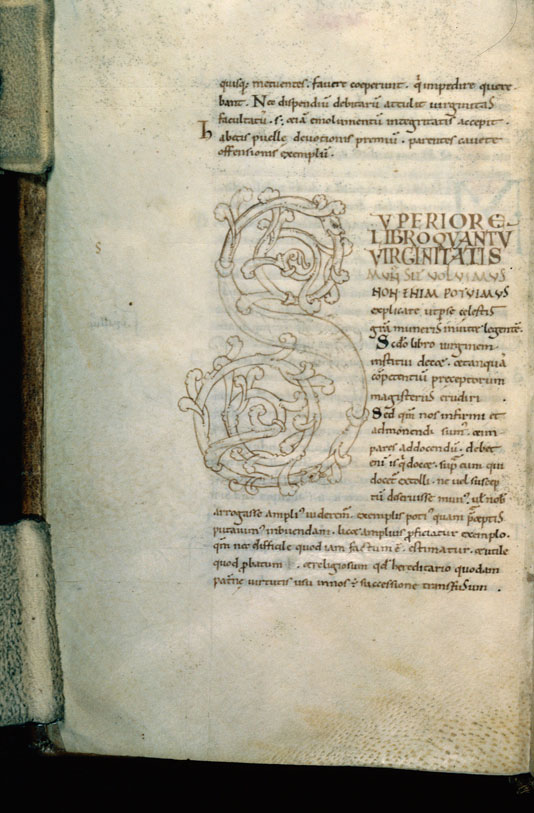 quisq; metuentes. favere coeperunt. q͂ impedire quere
bant. Nec dispendiū debitarū attulit virginitas
facultatū. s; etiā emolumentū integritatis accepit.
habetis puelle devotionis premiū. parentes cavete
offensionis exemplū.
S
s
VPERIORE
LIBRO QVANTV
VIRGINITATIS
MVN SIT VOLVIMVS
NON ENIM POTVIMVS
explicare ut ipse celestis
grā muneris invitet legente.
Sc̄do libro virginem
institui decet. et tanquā
cōpetentiū preceptorum
magisteriis erudiri.
Sed qm̄ nos infirmi et
admonendi sum. et im
pares addocendū. debet
enī is q̇ docet. supra eum qui
docet excelli. ne vel suscep
tū deseruisse mun. vł nob
arrogasse ampli viderem. exemplis poti quam p̄ceptis
putavim inbuendam. licet amplius proficiatur exemplo.
qm̄ nec difficile quod iam factum ē. estimatur. et utile
quod probatum. et religiosum qd hereditario quodam
paterne virtutis usu in nos ē successione transfusum.